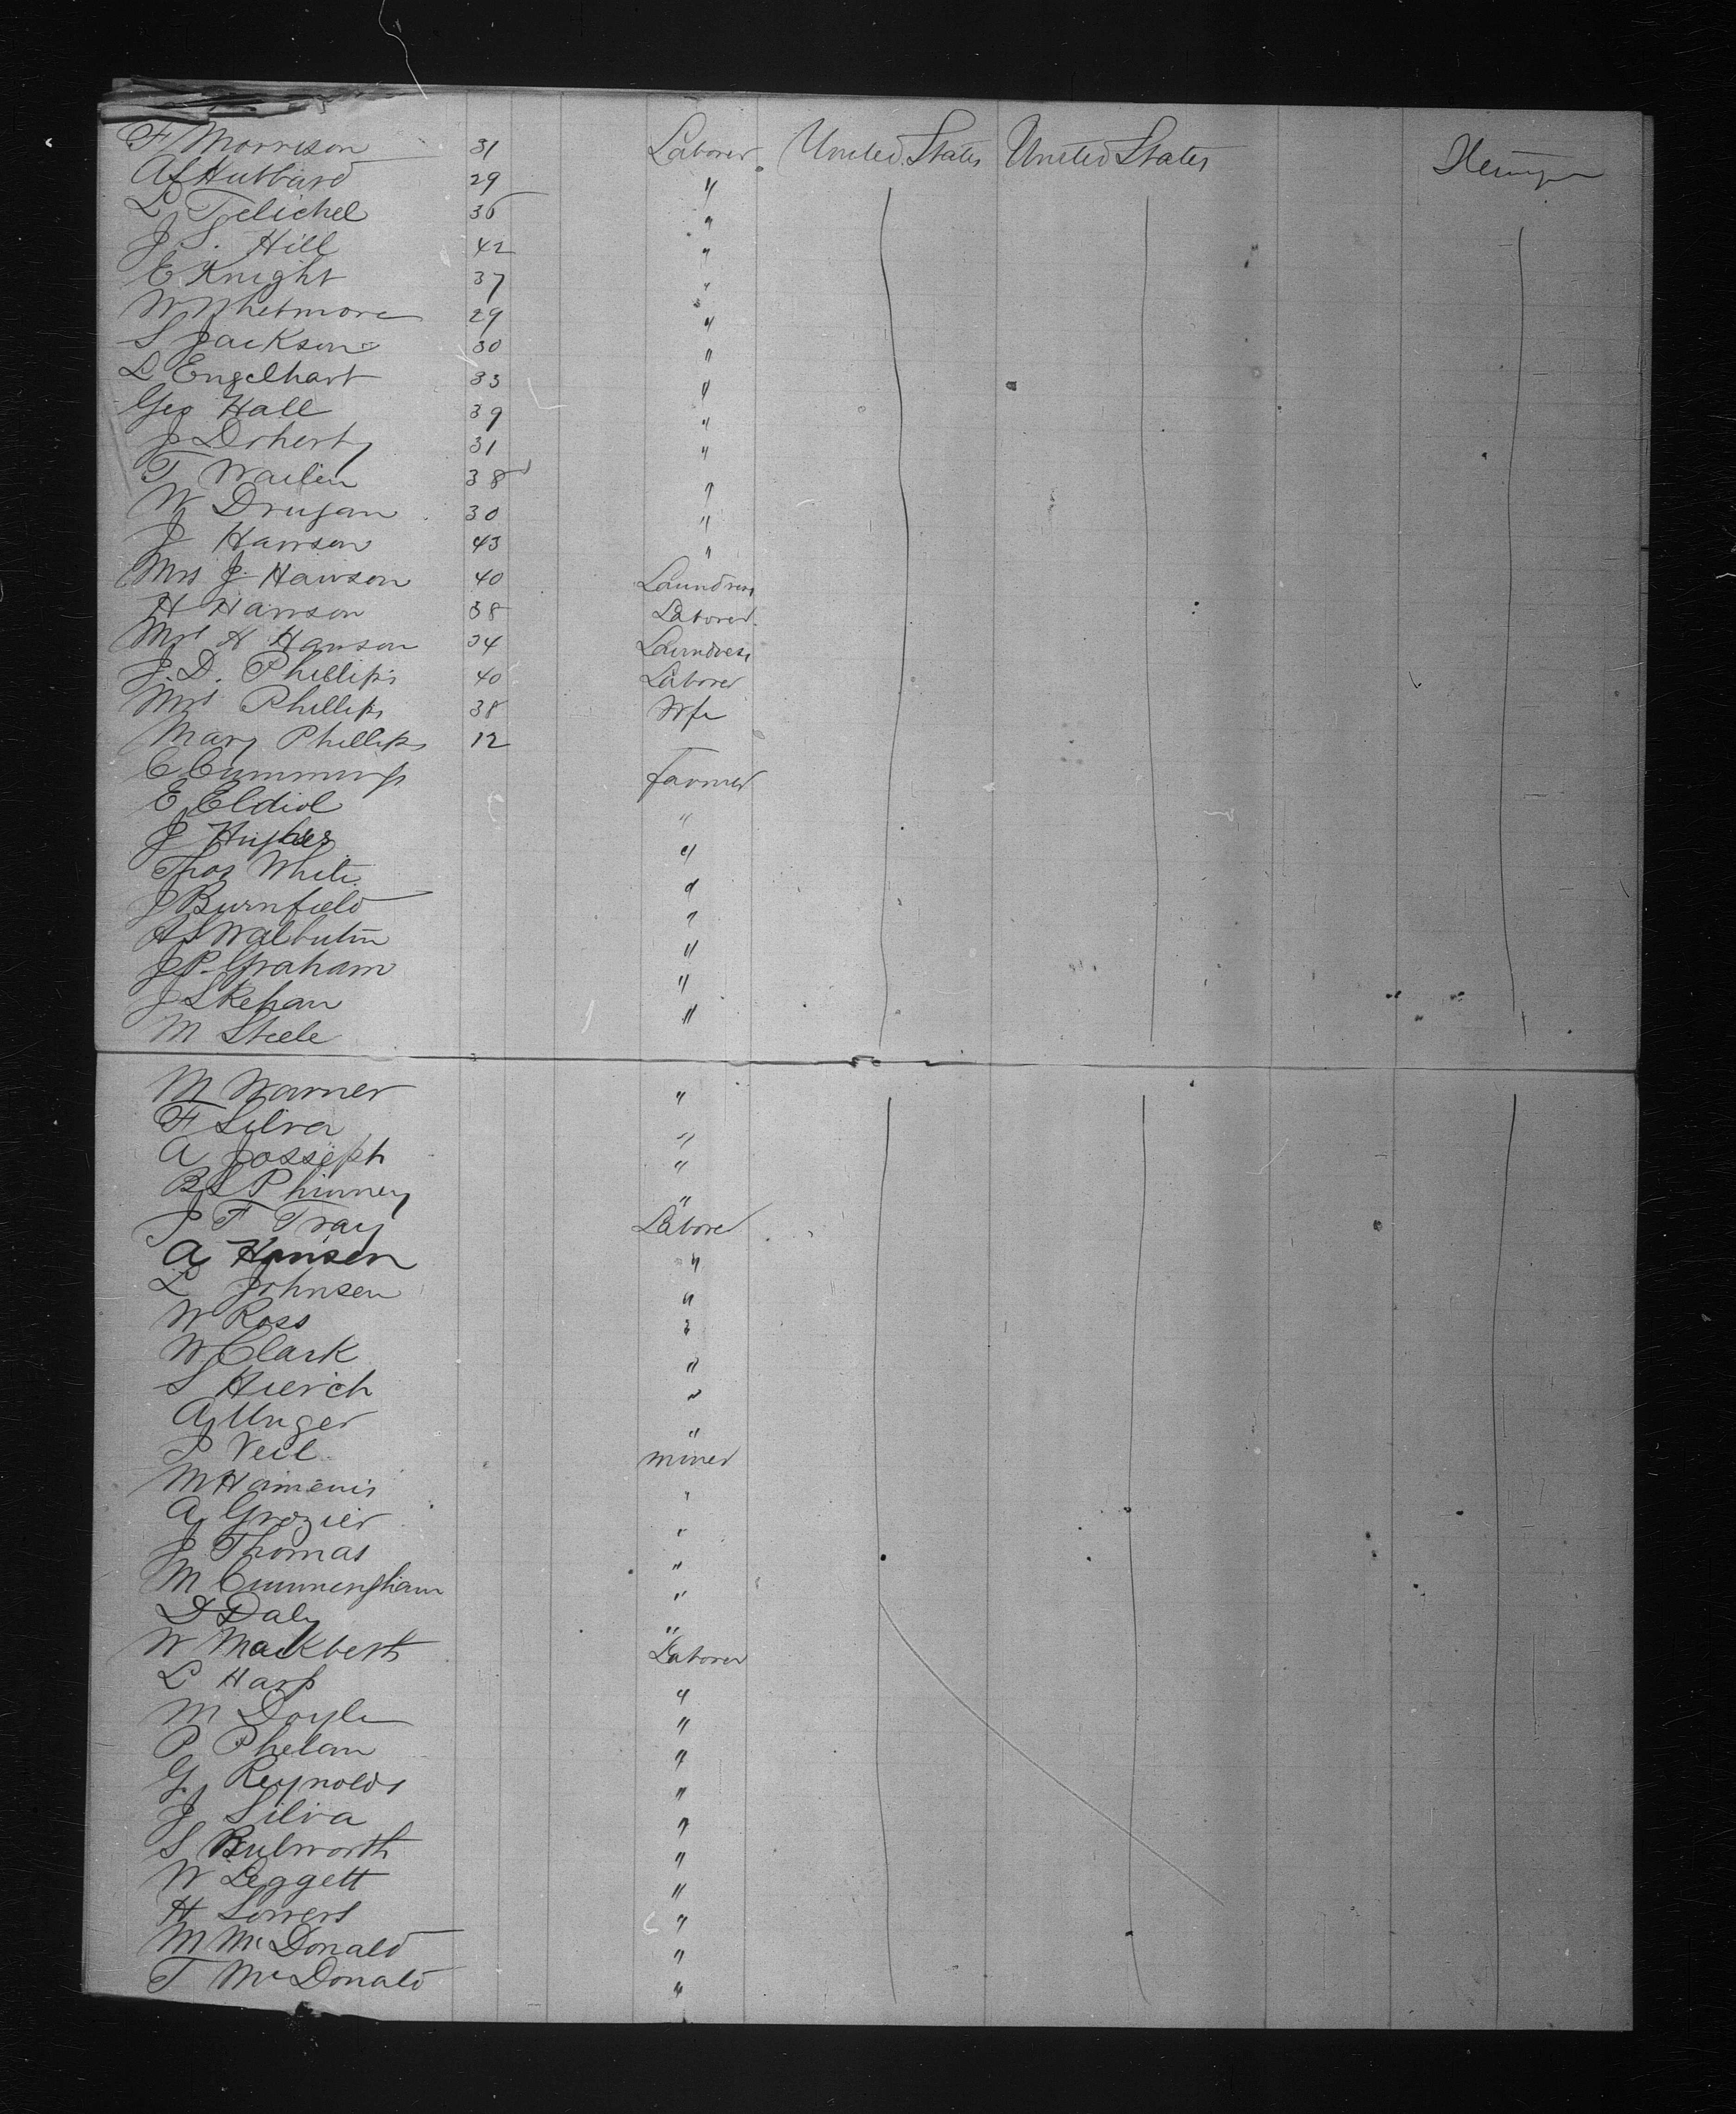 F Morrison 31 Laborer United States United States
A Hubbard 29 "
L 36 "
J. S. Hill 42 "
E Knight 37 "
W Whetmore 29 "
S Jackson 30 "
L Engelhart 33 "
Geo Hall 39 "
J Doherty 31 "
T 38 "
W Drugan 30 "
J Hanson 43 "
Mrs J Hanson 40 Laundress
H Hanson 38 Laborer
Mrs H Hanson 34 Laundress
J. D. Phillips 40 Laborer
Mrs Phillips 38 Wife
Mary Phillips 12
C Cummings Farmer
E "
J Hughes "
Thos White "
J Burnfield "
A S "
J P Graham "
J Skehan "
M Steele
M Warner "
F Silva "
A Josseph "
B S Phinney "
J F Tray Laborer
A Hansen "
L Johnsen "
W Ross "
W Clark "
S "
A Unger "
J Veil miner
M "
A Grozier "
J Thomas "
M Cunningham "
D Daly "
W Mackbeth Laborer
L Harp "
M Doyle "
P Phelan "
G Reynolds "
J Silva "
S Bulworth "
W Leggett "
H "
M McDonald "
T McDonald "